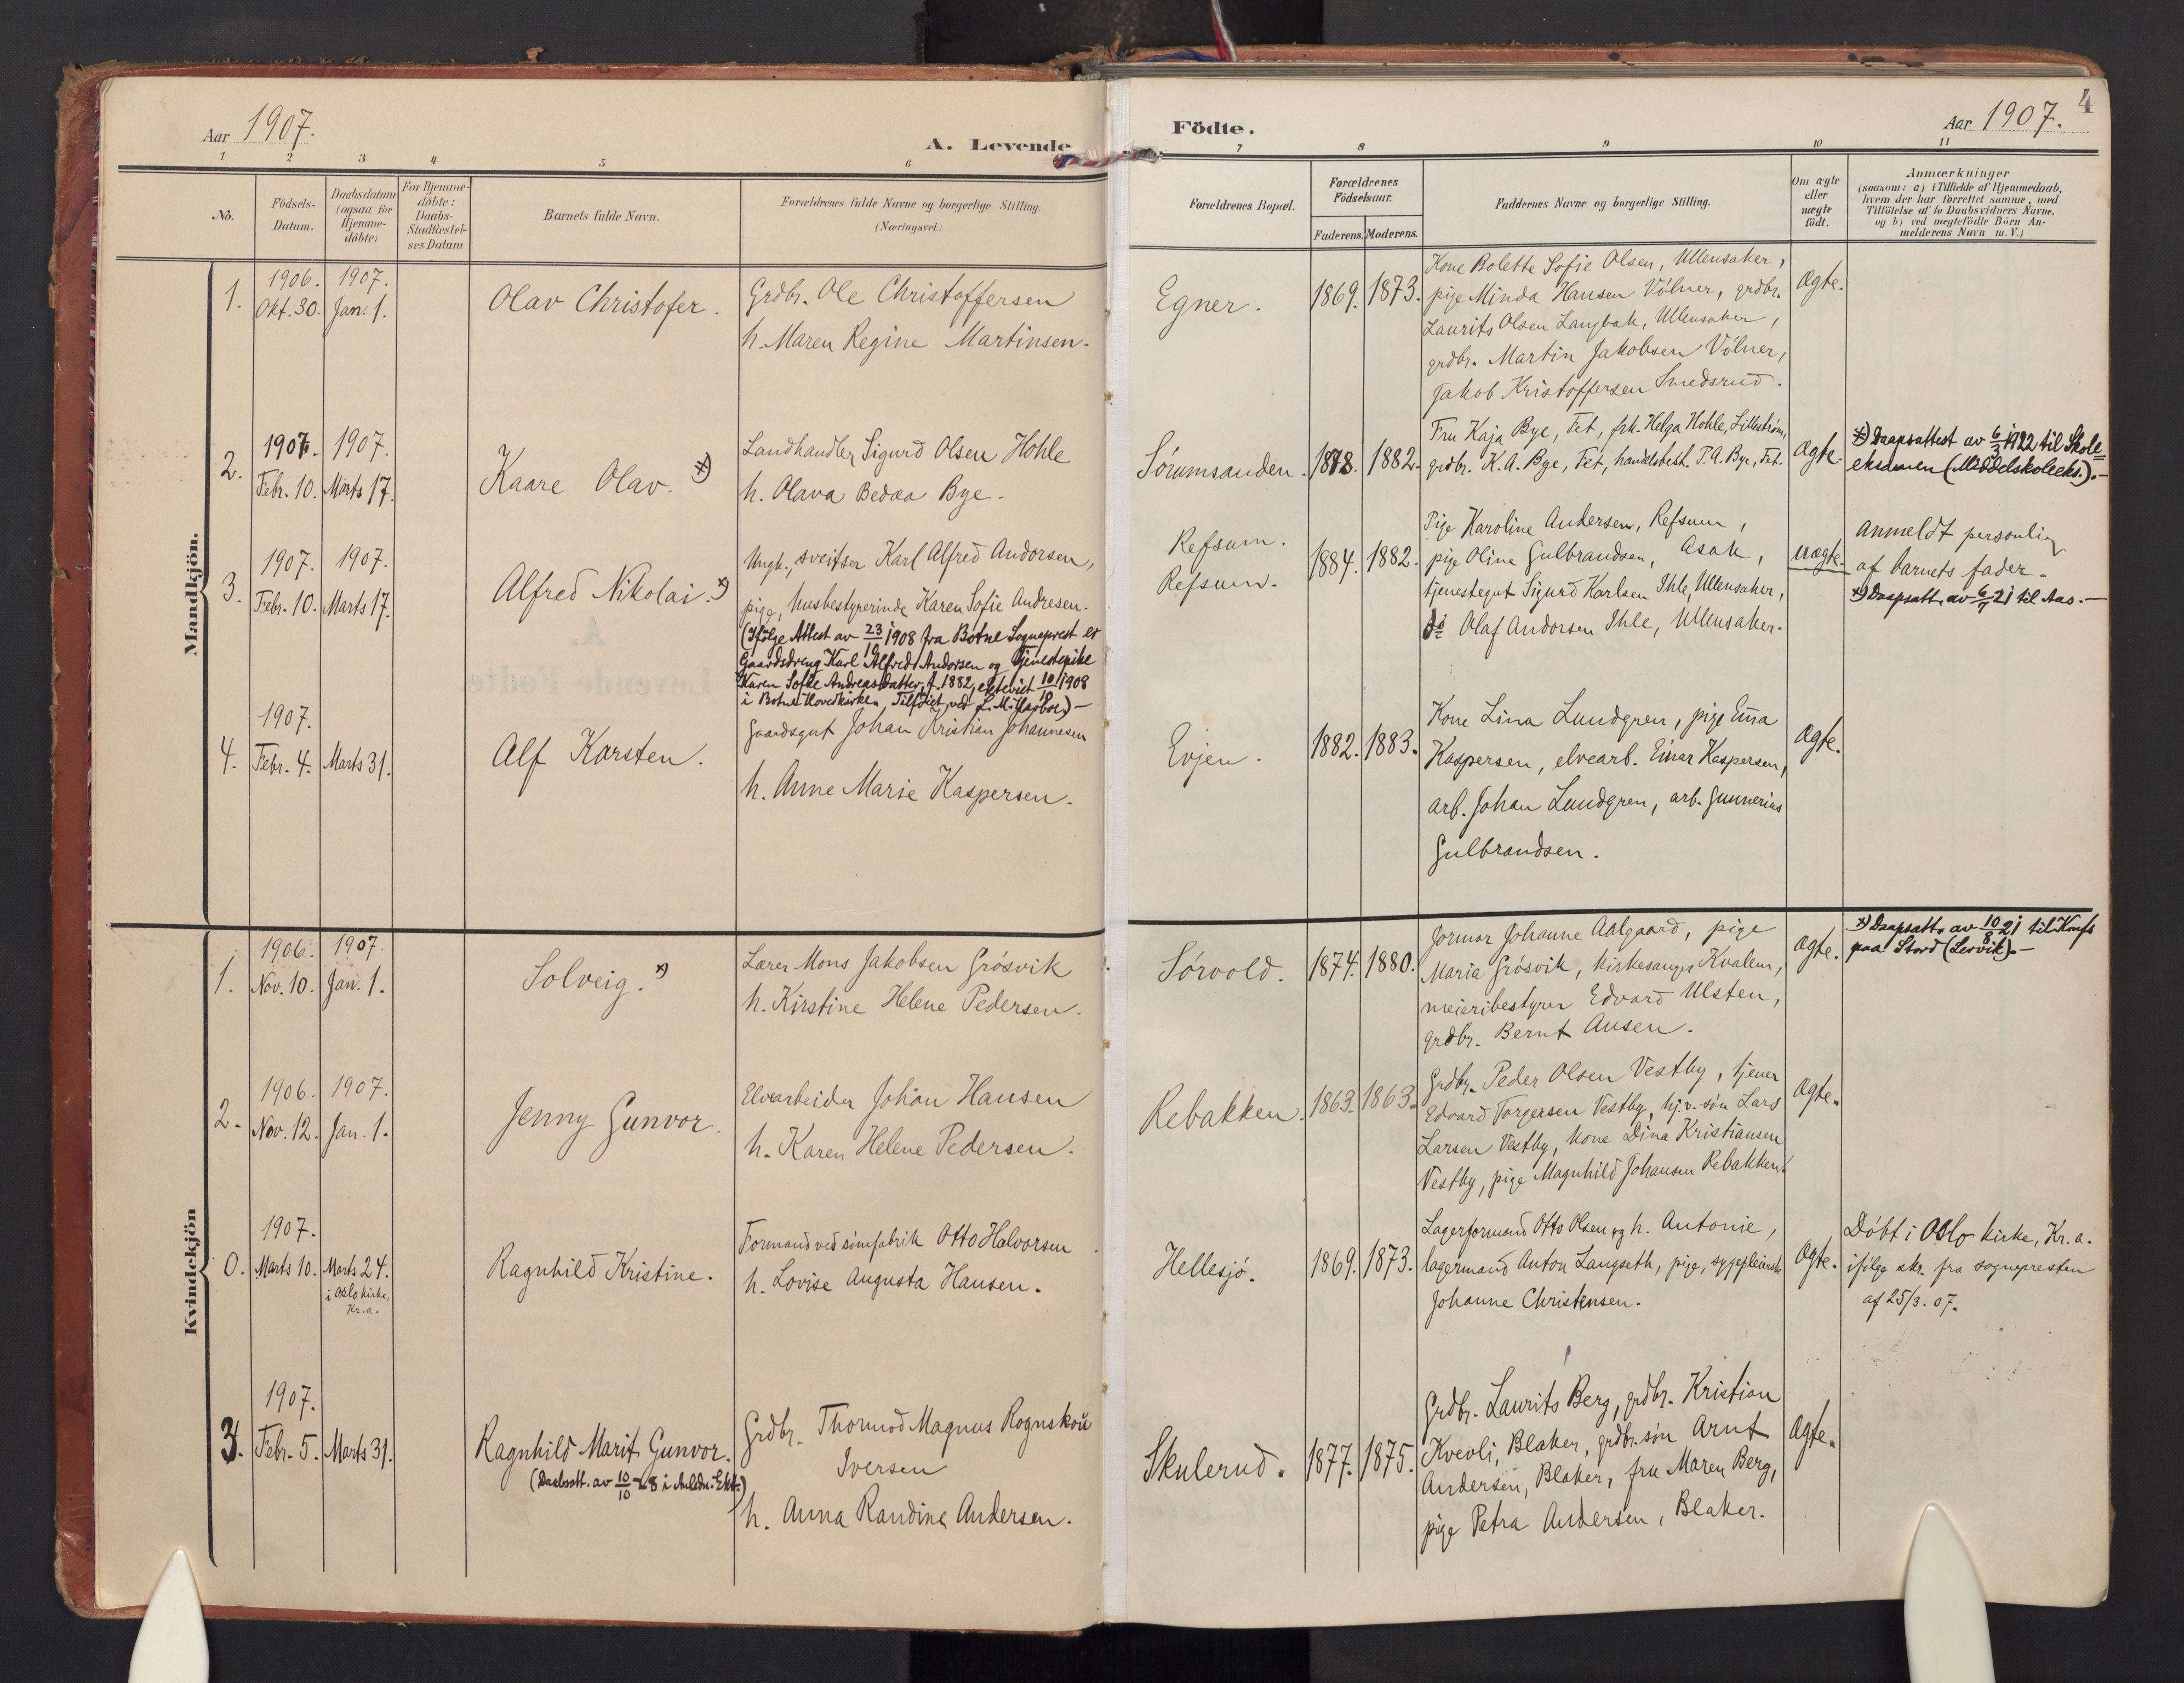 Aar 1907.
A. Levende
Födte.
Aar 1907.
4
1 2 3 4 5 6 7 8 9 10 11
No.
Födsels-
Datum.
Daabsdatum
(ogsaa for
Hjemme-
döbte)
For Hjemme-
döbte:
Daabs-
Stadfæstel-
ses Datum
Barnets fulde Navn.
Forældrenes fulde Navne og borgerlige Stilling.
(Næringsvei.)
Forældrenes Bopæl.
Forældrenes
Födselsaar.
Faderens. Moderens.
Faddernes Navne og borgerlige Stilling.
Om ægte
eller
uægte
födt.
Anmærkninger
(saasom: a) i Tilfælde af Hjemmedaab,
hvem der har forrettet samme, med
Tilföielse af to Daabsvidners Navne,
og b) ved uægtefödte Börn An-
melderens Navn m. V.)
Mandkjön.
1.
1906.
Okt. 30.
1907.
Jan. 1.
Olav Christofer.
Grdbr. Ole Christoffersen
h. Maren Regine Martinsen.
Egner.
1869. 1873.
Kone Bolette Sofie Olsen, Ullensaker,
pige Minda Hansen Völner, grdbr.
Laurits Olsen Langbak, Ullensaker,
grdbr. Martin Jakobsen Völner,
Jakob Kristoffersen Smedsrud.
Ægte.
2.
1907.
Febr. 10.
1907.
Marts 17.
Kaare Olav. *)
Landhandler Sigurd Olsen Hohle
h. Olava Bedaa Bye.
Sörumsanden.
1878. 1882.
Fru Kaja Bye, Fet, frk. Helga Hohle, Lilleström,
grdbr. K. A. Bye, Fet, handelsbest. P. A. Bye, Fet.
Ægte.
*) Daapsattest av 6/3 1922 til Skole=
eksamen (Middelskoleeks.).-
3.
1907.
Febr. 10.
1907.
Marts 17.
Alfred Nikolai. *)
Ungk., sveitser Karl Alfred Andorsen,
pige, husbestyrerinde Karen Sofie Andresen.
(Ifölge Attest av 23/10 1908 fra Botne Sogneprest er
Gaardsdreng Karl Alfred Andorsen og Tjenestepike
Karen Sofie Andreasdatter, f. 1882, egteviet 10/10 1908
i Botne Hovedkirke. Tilföiet ved L. M. Harboe) -
Refsum.
Refsum.
1884. 1882.
Pige Karoline Andersen, Refsum,
pige Oline Gulbrandsen, Asak,
tjenestegut Sigurd Karlsen Ihle, Ullensaker,
do Olaf Andorsen Ihle, Ullensaker.
uægte.
Anmeldt personlig
af barnets fader.
*) Daapsatt. av 6/7 21 til Aas.-
4.
1907.
Febr. 4.
Marts 31.
Alf Karsten.
Gaardsgut Johan Kristian Johannesen
h. Anne Marie Kaspersen.
Evjen.
1882. 1883.
Kone Lina Lundgren, pige Emma
Kaspersen, elvearb. Einar Kaspersen,
arb. Johan Lundgren, arb. Gunnerius
Gulbrandsen.
Ægte.
Kvindekjön
1.
1906.
Nov. 10.
1907.
Jan. 1.
Solveig. *)
Lærer Mons Jakobsen Grösvik
h. Kirstine Helene Pedersen.
Sörvold.
1874. 1880.
Jormor Johanne Aalgaard, pige
Maria Grösvik, kirkesanger Kvalem,
meieribestyrer Edvard Ulsten,
grdbr. Bernt Ausen.
Ægte.
*) Daapsatt. av 10/8 21 til Konf.
paa Stord (Lervik).-
2.
1906.
Nov. 12.
1907.
Jan. 1.
Jenny Gunvor.
Elvearbeider Johan Hansen
h. Karen Helene Pedersen.
Rebakken.
1863. 1863.
Grdbr. Peder Olsen Vestby, tjener
Edvard Torgersen Vestby, hj.v. sön Lars
Larsen Vestby, kone Dina Kristiansen
Vestby, pige Magnhild Johansen Rebakken.
Ægte.
0.
1907.
Marts 10.
Marts 24.
i Oslo kirke,
Kr.a.
Ragnhild Kristine.
Formand ved limfabrik Otto Halvorsen
h. Lovise Augusta Hansen.
Hellesjö.
1869. 1873.
Lagerformand Otto Olsen og h. Antonie,
lagermand Anton Langseth, pige, sygepleierske
Johanne Christensen.
Ægte.
Döbt i Oslo kirke, Kr.a.
ifölge skr. fra sognepresten
af 25/3. 07.
3.
1907.
Febr. 5.
Marts 31.
Ragnhild Marit Gunvor.
(Daabsatt. av 10/10 -28 i Anledn. Ekt.)
Grdbr. Thormod Magnus Rognskou
Iversen
h. Anna Randine Andersen.
Skulerud.
1877. 1875.
Grdbr. Laurits Berg, grdbr. Kristian
Kvevli, Blaker, grdbr.sön Arnt
Andersen, Blaker, fru Maren Berg,
pige Petra Andersen, Blaker.
Ægte.